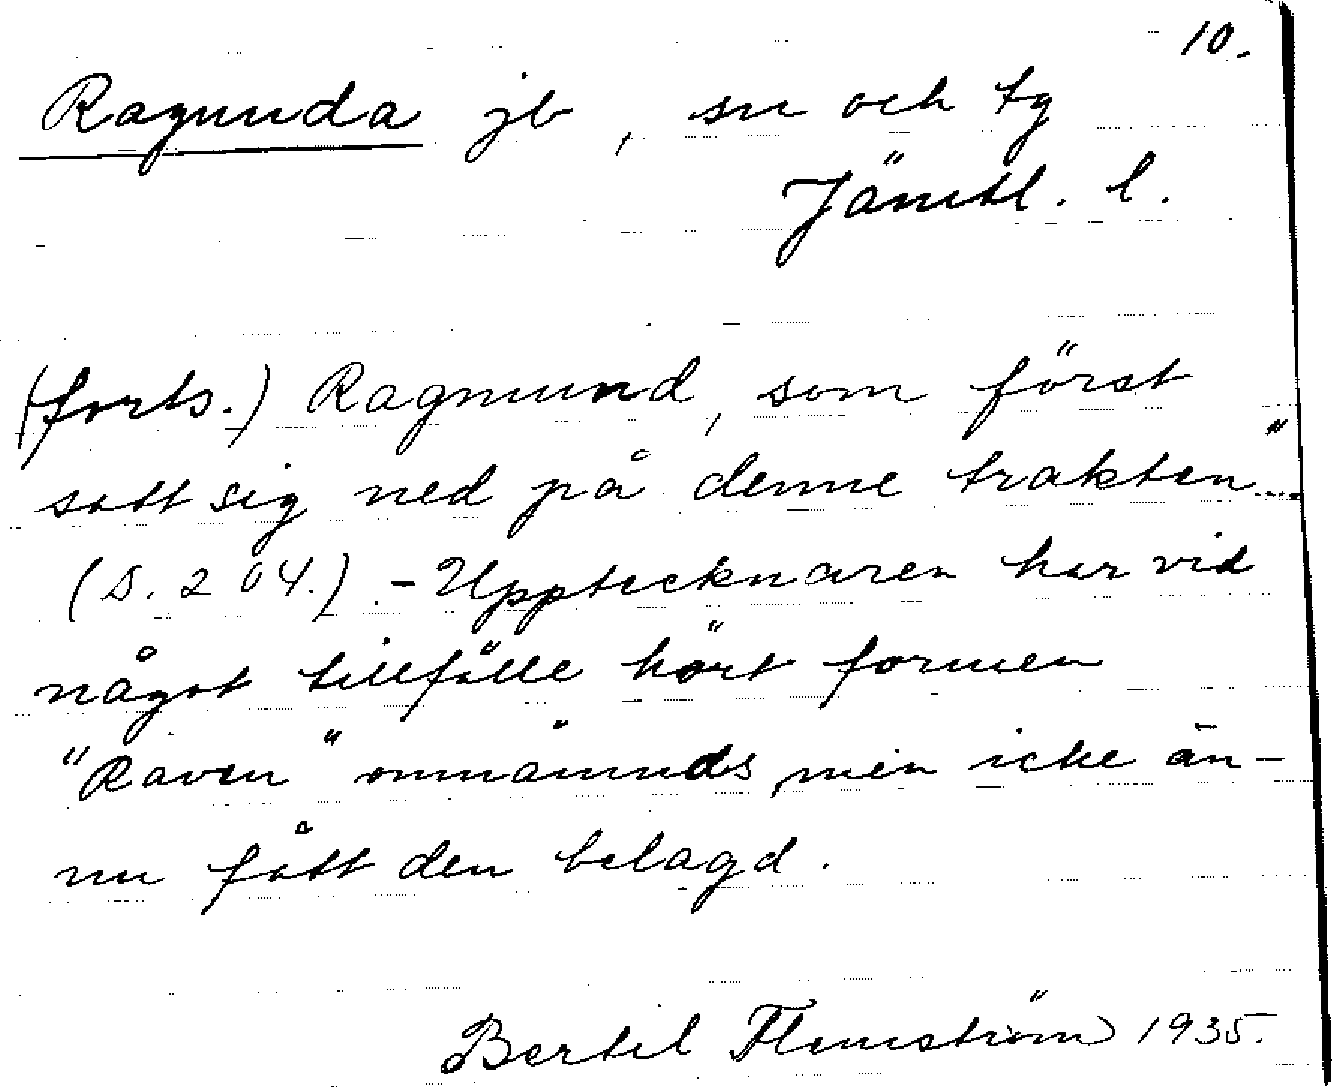 10.
Ragunda jb, sn och tg
Jämtl. l.
(forts.) Ragmund, som först
satt sig ned på denne trakten..."
(S. 204.). - Upptecknaren har vid
något tillfälle hört formen
"Raven" omnämnds, men icke än-
nu fått den belagd.
Bertil Flemström 1935.